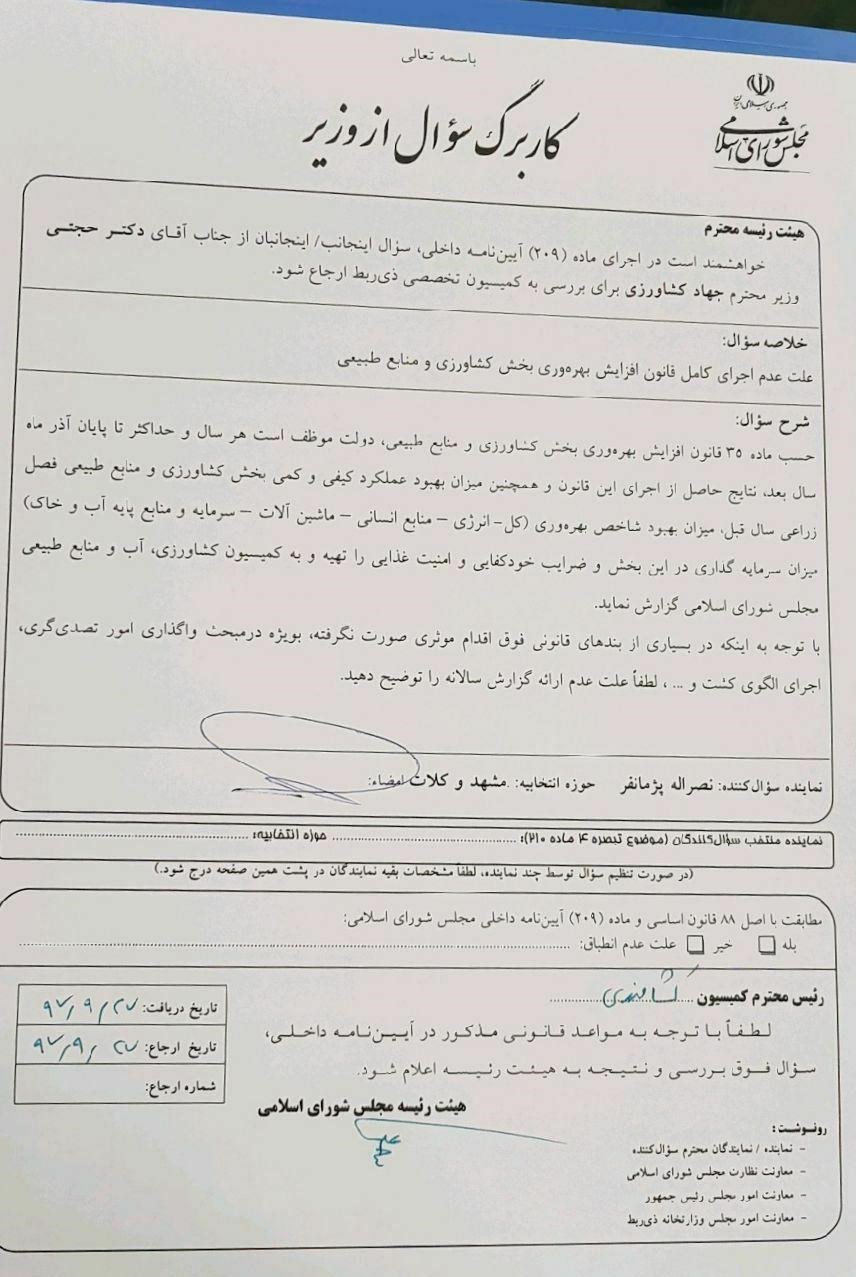 باسمه تعالی
جمهوری اسلامی ایران
مجلس شورای اسلامی
کاربرگ سؤال از وزیر
هیئت رئیسه محترم
خواهشمند است در اجرای ماده (۲۰۹) آیین‌نامه داخلی، سؤال اینجانب/ اینجانبان از جناب آقای دکتر حجتی
وزیر محترم جهاد کشاورزی برای بررسی به کمیسیون تخصصی ذی‌ربط ارجاع شود.
خلاصه سؤال:
علت عدم اجرای کامل قانون افزایش بهره‌وری بخش کشاورزی و منابع طبیعی
شرح سؤال:
حسب ماده ۳۵ قانون افزایش بهره‌وری بخش کشاورزی و منابع طبیعی، دولت موظف است هر سال و حداکثر تا پایان آذر ماه
سال بعد، نتایج حاصل از اجرای این قانون و همچنین میزان بهبود عملکرد کیفی و کمی بخش کشاورزی و منابع طبیعی فصل
زراعی سال قبل، میزان بهبود شاخص بهره‌وری (کل- انرژی – منابع انسانی – ماشین آلات – سرمایه و منابع پایه آب و خاک)
میزان سرمایه گذاری در این بخش و ضرایب خودکفایی و امنیت غذایی را تهیه و به کمیسیون کشاورزی، آب و منابع طبیعی
مجلس شورای اسلامی گزارش نماید.
با توجه به اینکه در بسیاری از بندهای قانونی فوق اقدام موثری صورت نگرفته، بویژه درمبحث واگذاری امور تصدی‌گری،
اجرای الگوی کشت و ... ، لطفاً علت عدم ارائه گزارش سالانه را توضیح دهید.
نماینده سؤال‌کننده: نصراله پژمانفر حوزه انتخابیه: .مشهد و کلات امضاء:
نماینده منتخب سؤال‌کنندگان (موضوع تبصره ۴ ماده ۲۱۰): .................... حوزه انتخابیه: ....................
(در صورت تنظیم سؤال توسط چند نماینده، لطفاً مشخصات بقیه نمایندگان در پشت همین صفحه درج شود.)
مطابقت با اصل ۸۸ قانون اساسی و ماده (۲۰۹) آیین‌نامه داخلی مجلس شورای اسلامی:
بله خیر علت عدم انطباق: ....................
رئیس محترم کمیسیون ..... کشاورزی .....
لطفاً با توجه به مواعد قانونی مذکور در آیین‌نامه داخلی،
سؤال فوق بررسی و نتیجه به هیئت رئیسه اعلام شود.
هیئت رئیسه مجلس شورای اسلامی
تاریخ دریافت: ۹۷/۹/۲۷
تاریخ ارجاع: ۹۷/۹/۲۷
شماره ارجاع:
رونوشت:
- نماینده / نمایندگان محترم سؤال‌کننده
- معاونت نظارت مجلس شورای اسلامی
- معاونت امور مجلس رئیس جمهور
- معاونت امور مجلس وزارتخانه ذی‌ربط